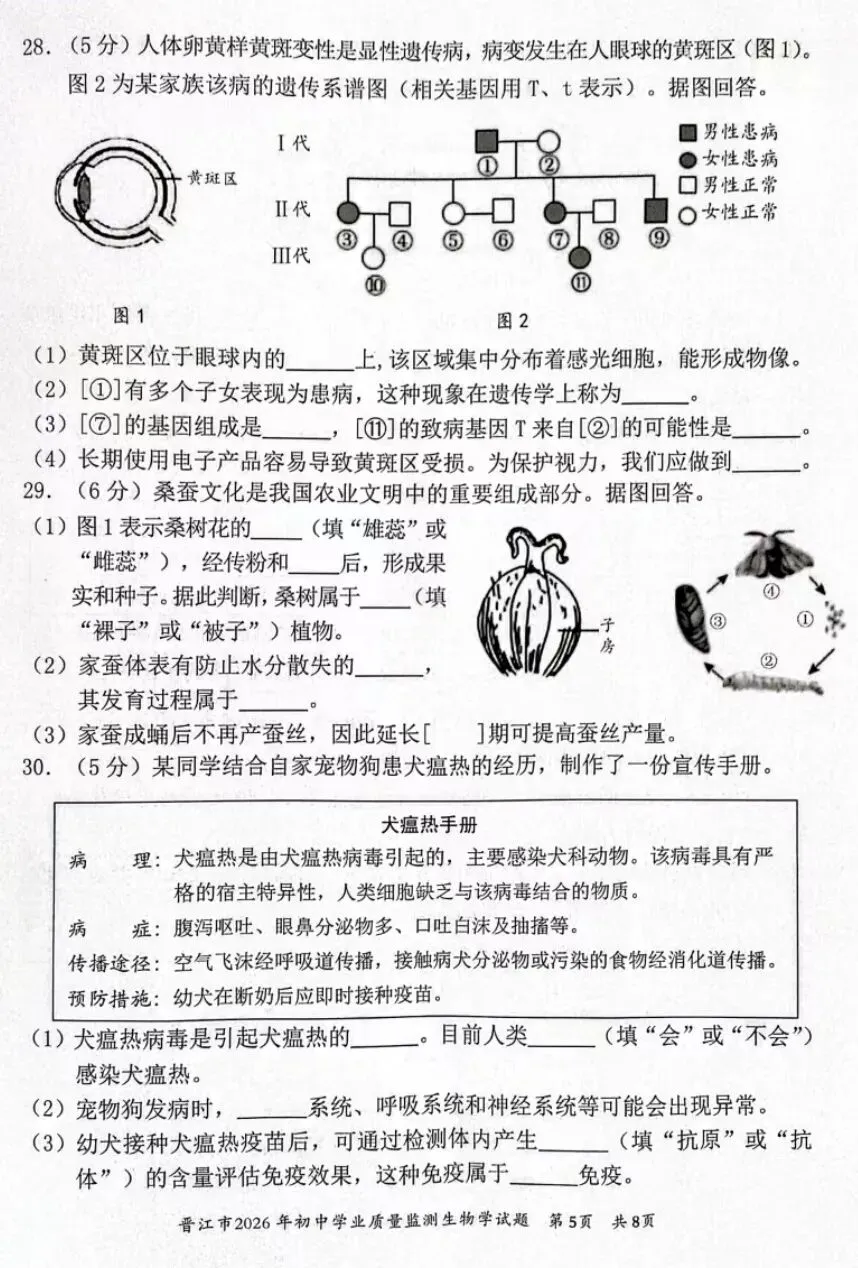 28.（5分）人体卵黄样黄斑变性是显性遗传病，病变发生在人眼球的黄斑区（图1）。
图2为某家族该病的遗传系谱图（相关基因用T、t表示）。据图回答。
黄斑区
图1
Ⅰ代
Ⅱ代
Ⅲ代
① ②
③ ④ ⑤ ⑥ ⑦ ⑧ ⑨
⑩ ⑪
男性患病
女性患病
男性正常
女性正常
图2
（1）黄斑区位于眼球内的______上,该区域集中分布着感光细胞，能形成物像。
（2）[①]有多个子女表现为患病，这种现象在遗传学上称为______。
（3）[⑦]的基因组成是______，[⑪]的致病基因T来自[②]的可能性是______。
（4）长期使用电子产品容易导致黄斑区受损。为保护视力，我们应做到______。
29.（6分）桑蚕文化是我国农业文明中的重要组成部分。据图回答。
（1）图1表示桑树花的____（填“雄蕊”或
“雌蕊”），经传粉和____后，形成果
实和种子。据此判断，桑树属于____（填
“裸子”或“被子”）植物。
（2）家蚕体表有防止水分散失的______，
其发育过程属于______。
（3）家蚕成蛹后不再产蚕丝，因此延长[ ]期可提高蚕丝产量。
子房
①
②
③
④
30.（5分）某同学结合自家宠物狗患犬瘟热的经历，制作了一份宣传手册。
犬瘟热手册
病 理：犬瘟热是由犬瘟热病毒引起的，主要感染犬科动物。该病毒具有严
格的宿主特异性，人类细胞缺乏与该病毒结合的物质。
病 症：腹泻呕吐、眼鼻分泌物多、口吐白沫及抽搐等。
传播途径：空气飞沫经呼吸道传播，接触病犬分泌物或污染的食物经消化道传播。
预防措施：幼犬在断奶后应即时接种疫苗。
（1）犬瘟热病毒是引起犬瘟热的______。目前人类______（填“会”或“不会”）
感染犬瘟热。
（2）宠物狗发病时，______系统、呼吸系统和神经系统等可能会出现异常。
（3）幼犬接种犬瘟热疫苗后，可通过检测体内产生______（填“抗原”或“抗
体”）的含量评估免疫效果，这种免疫属于______免疫。
晋江市2026年初中学业质量监测生物学试题 第5页 共8页